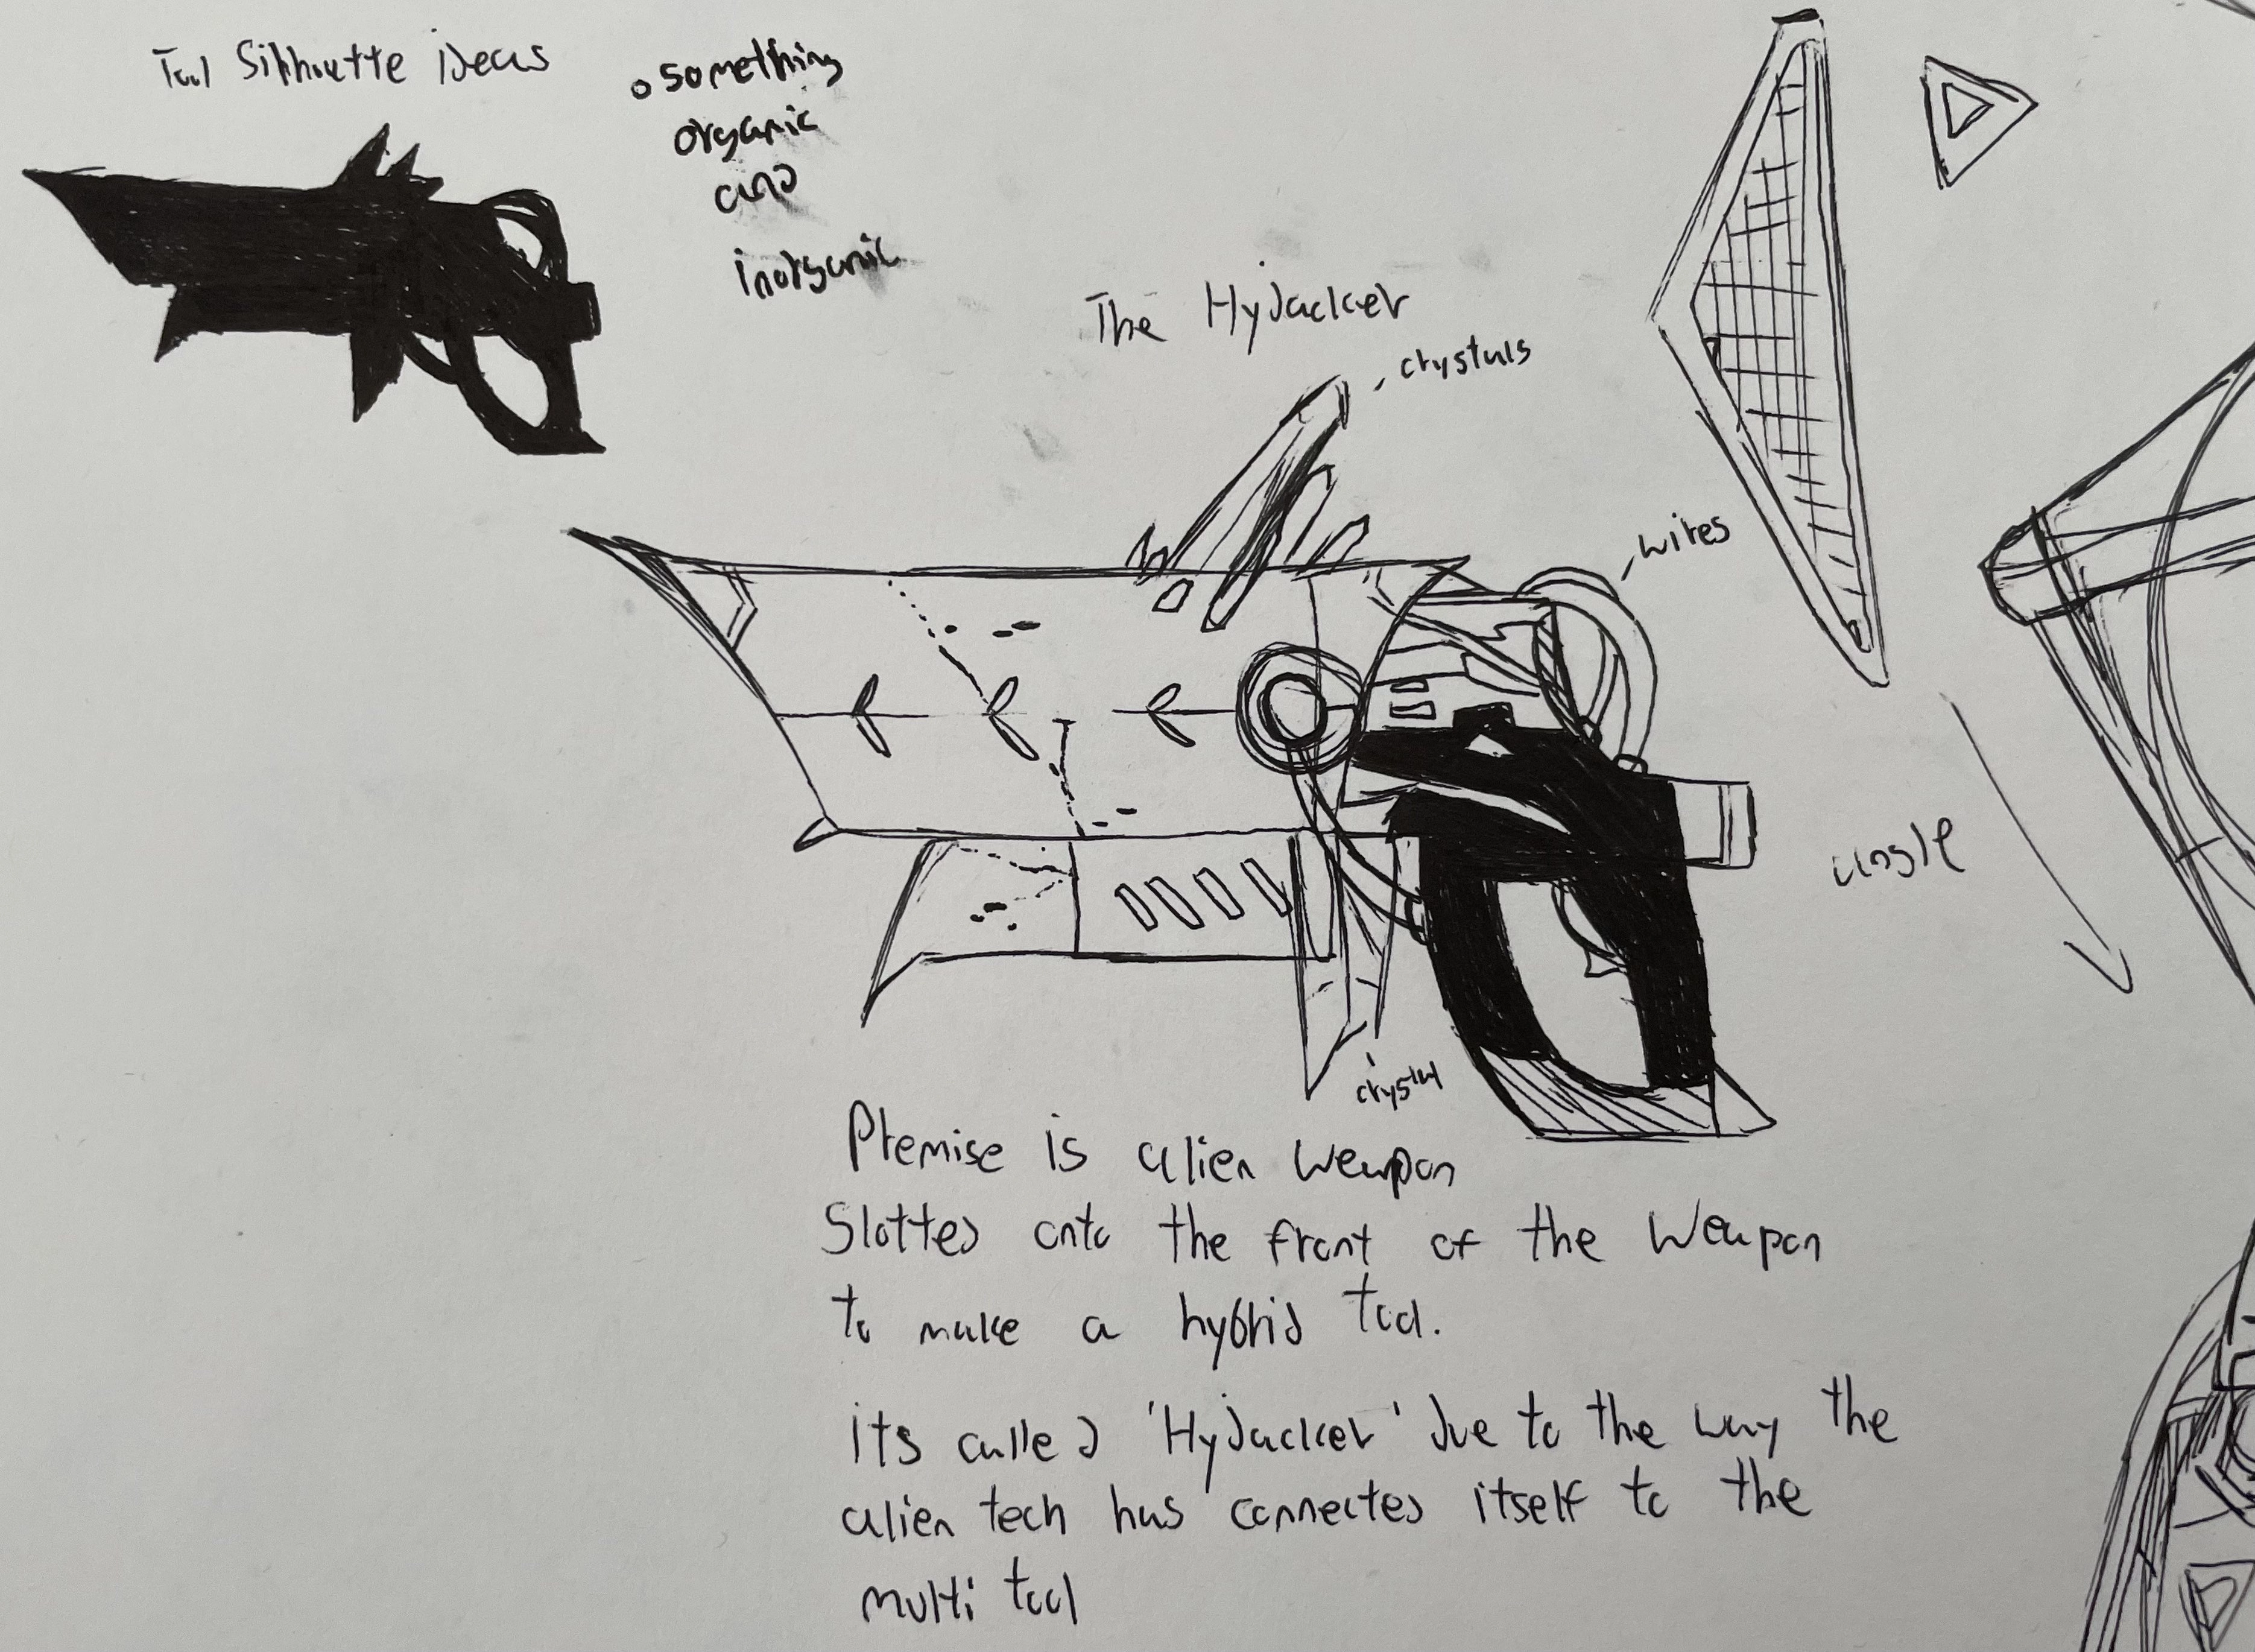 Tool Silhoutte iDeas
o something
organic
anD
inorganic
The HyJacker
crystals
wires
angle
crystal
Premise is alien weapon
SlotteD onto the front of the Weapon
to make a hybriD tool.
its calleD 'HyJacker' Due to the way the
alien tech has connecteD itself to the
multi tool